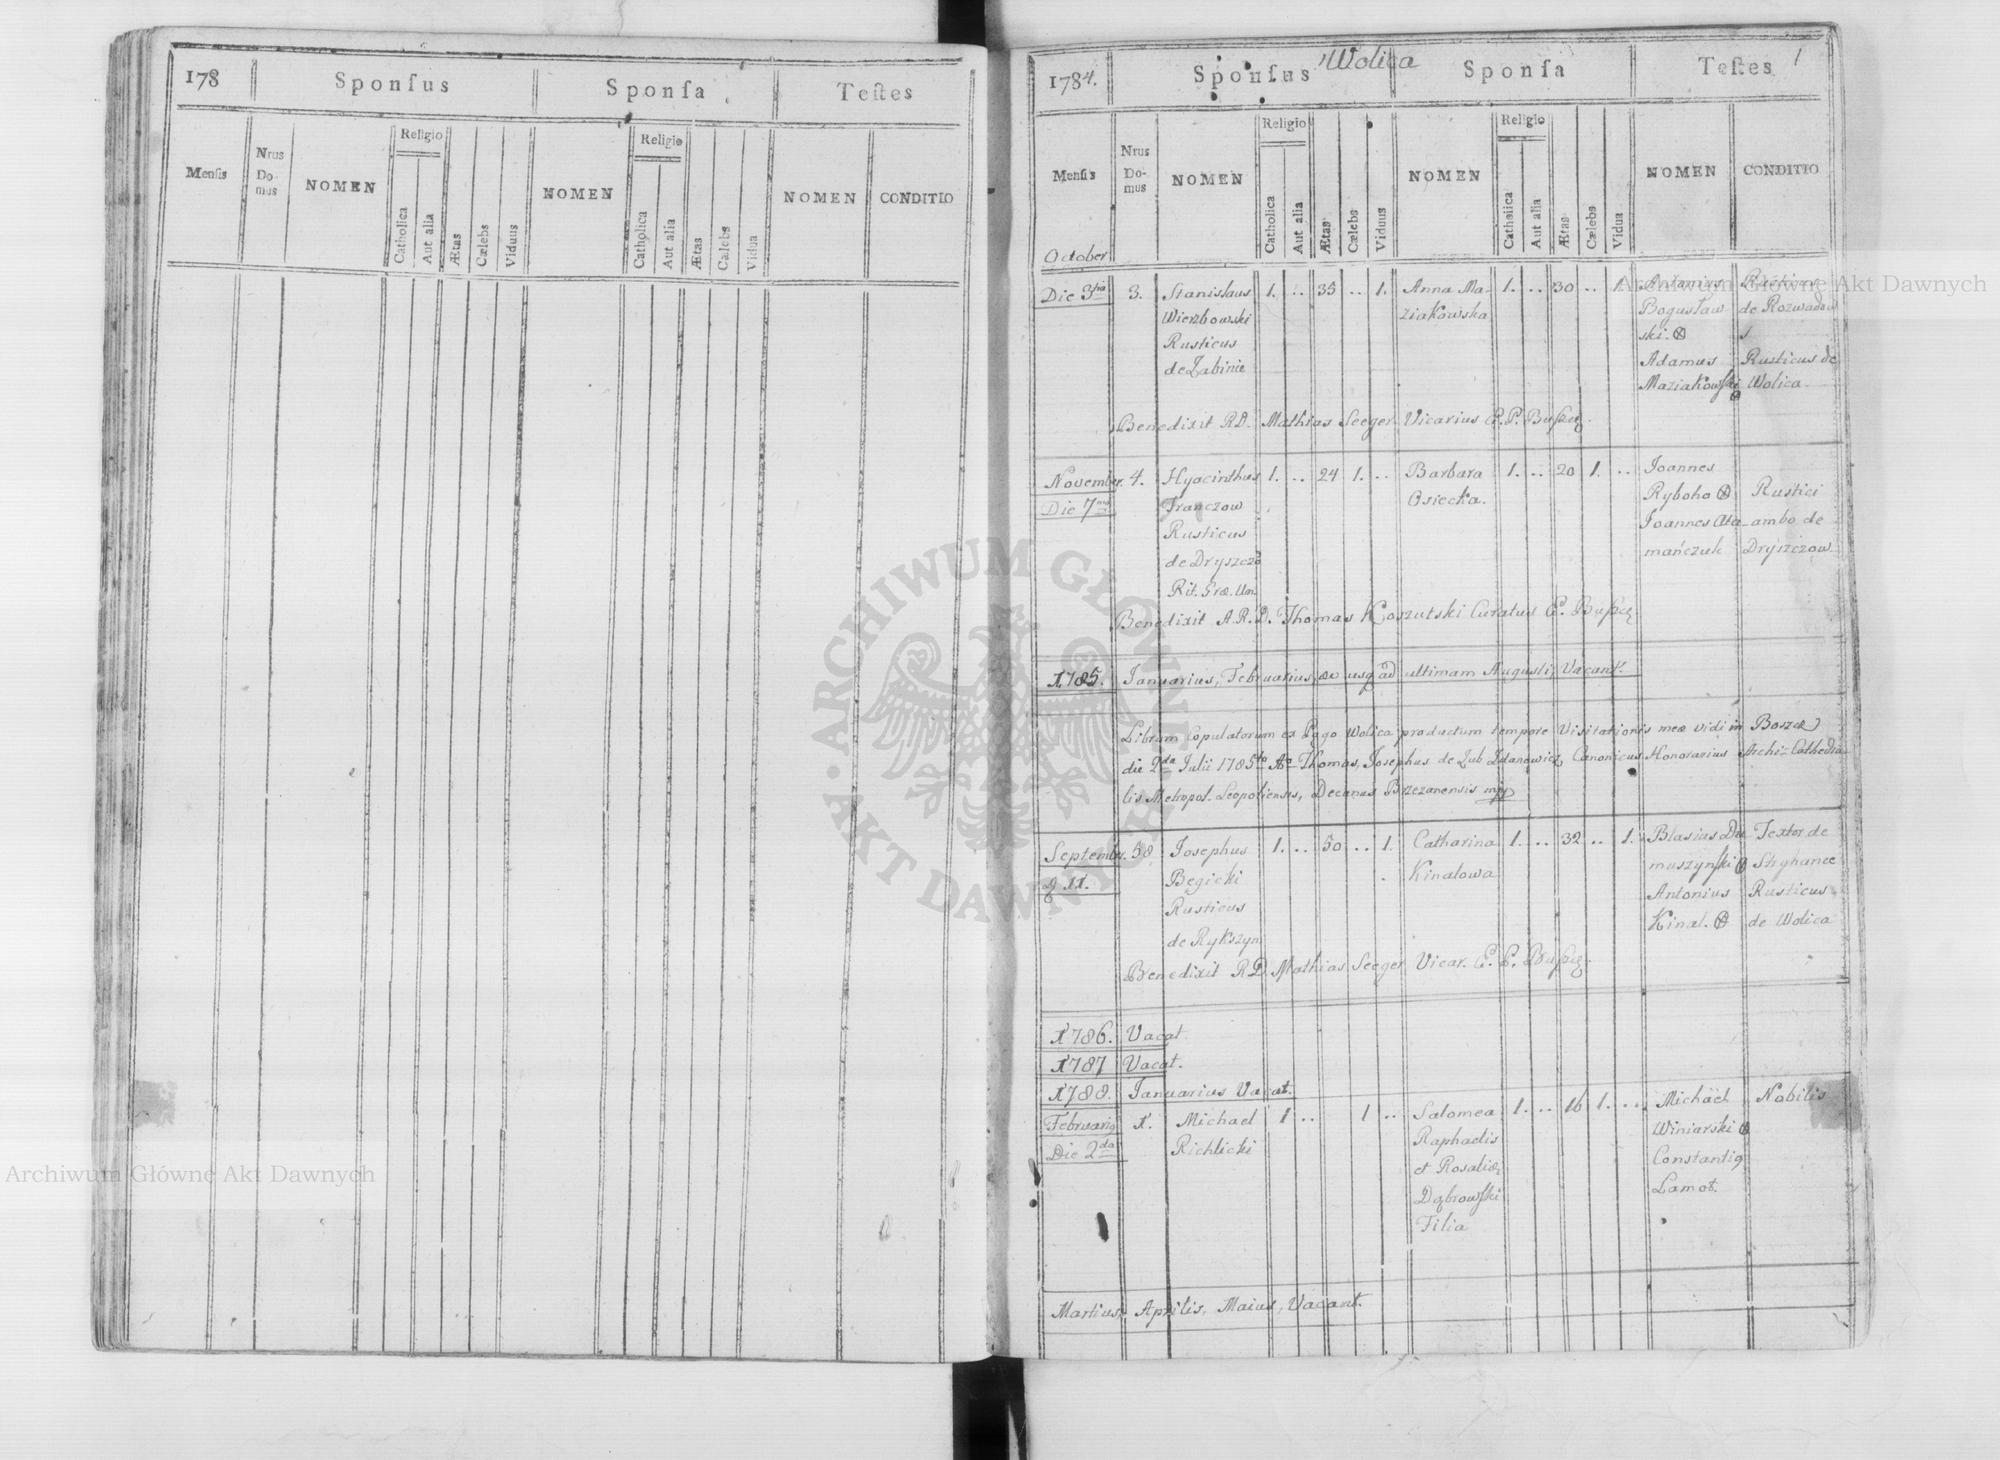 178 Sponſus Sponſa Teſtes
Menſis Nrus Do- mus NOMEN Religio Catholica Aut alia Ætas Cælebs Viduus NOMEN Religio Catholica Aut alia Ætas Cælebs Vidua NOMEN CONDITIO
Wolica 1
1784. Sponſus Sponſa Teſtes
Menſis Nrus Do- mus NOMEN Religio Catholica Aut alia Ætas Cælebs Viduus NOMEN Religio Catholica Aut alia Ætas Cælebs Vidua NOMEN CONDITIO
October
Die 3tia 3. Stanislaus 1. .. 35 .. 1. Anna Ma- 1. .. 30 .. 1. Antonius Rusticus
Wierzbowski ziakowska Bogusław de Rozwadow
Rusticus ski. ⊗
de Żabinie Adamus Rusticus de
Maziakowſki Wolica
Benedixit RD. Mathias Seeger Vicarius
November 4. Hyacinthus 1. .. 24 1. .. Barbara 1. .. 20 1. .. Joannes
Die 7ma Franczow Osiecka. Ryboho ⊗ Rustici
Rusticus Joannes Ata- ambo de
de Dryszczo mańczuk Dryszczow
Rit. Græ. Un.
Benedixit A.R.D. Thomas Koszutski Curatus
1785. Januarius, Februarius, usq ad ultimam Augusti, Vacant.
Librum Copulatorum ex Pago Wolica productum tempore Visitationis meæ vidi in
die 2da Julii 1785to Ao Thomas, Josephus de Lub Zdanowicz, Canonicus Honorarius Archi-Cathedra-
lis Metropol. Leopoliensis, Decanus Brzezanensis mpp
September. 58. Josephus 1. .. 50 .. 1. Catharina 1. .. 32 .. 1. Blasius Du Textor de
11. Bęgicki Kinalowa muszynſki ⊗
Rusticus Antonius Rusticus
de Rykszyn Kinal. ⊗ de Wolica
Benedixit R.D. Mathias Seeger Vicar.
1786. Vacat.
1787 Vacat.
1788. Januarius Vacat.
Februarius 1. Michael 1 .. 1 .. Salomea 1. .. 16 1. .. Michaël Nobilis
Die 2da Richlicki Raphaelis Winiarski ⊗
et Rosaliæ Constantiq
Dąbrowſki Lamot.
Filia
Martius, Aprilis, Maius, Vacant.
ARCHIWUM GŁÓWNE AKT DAWNYCH
Archiwum Główne Akt Dawnych
Archiwum Główne Akt Dawnych